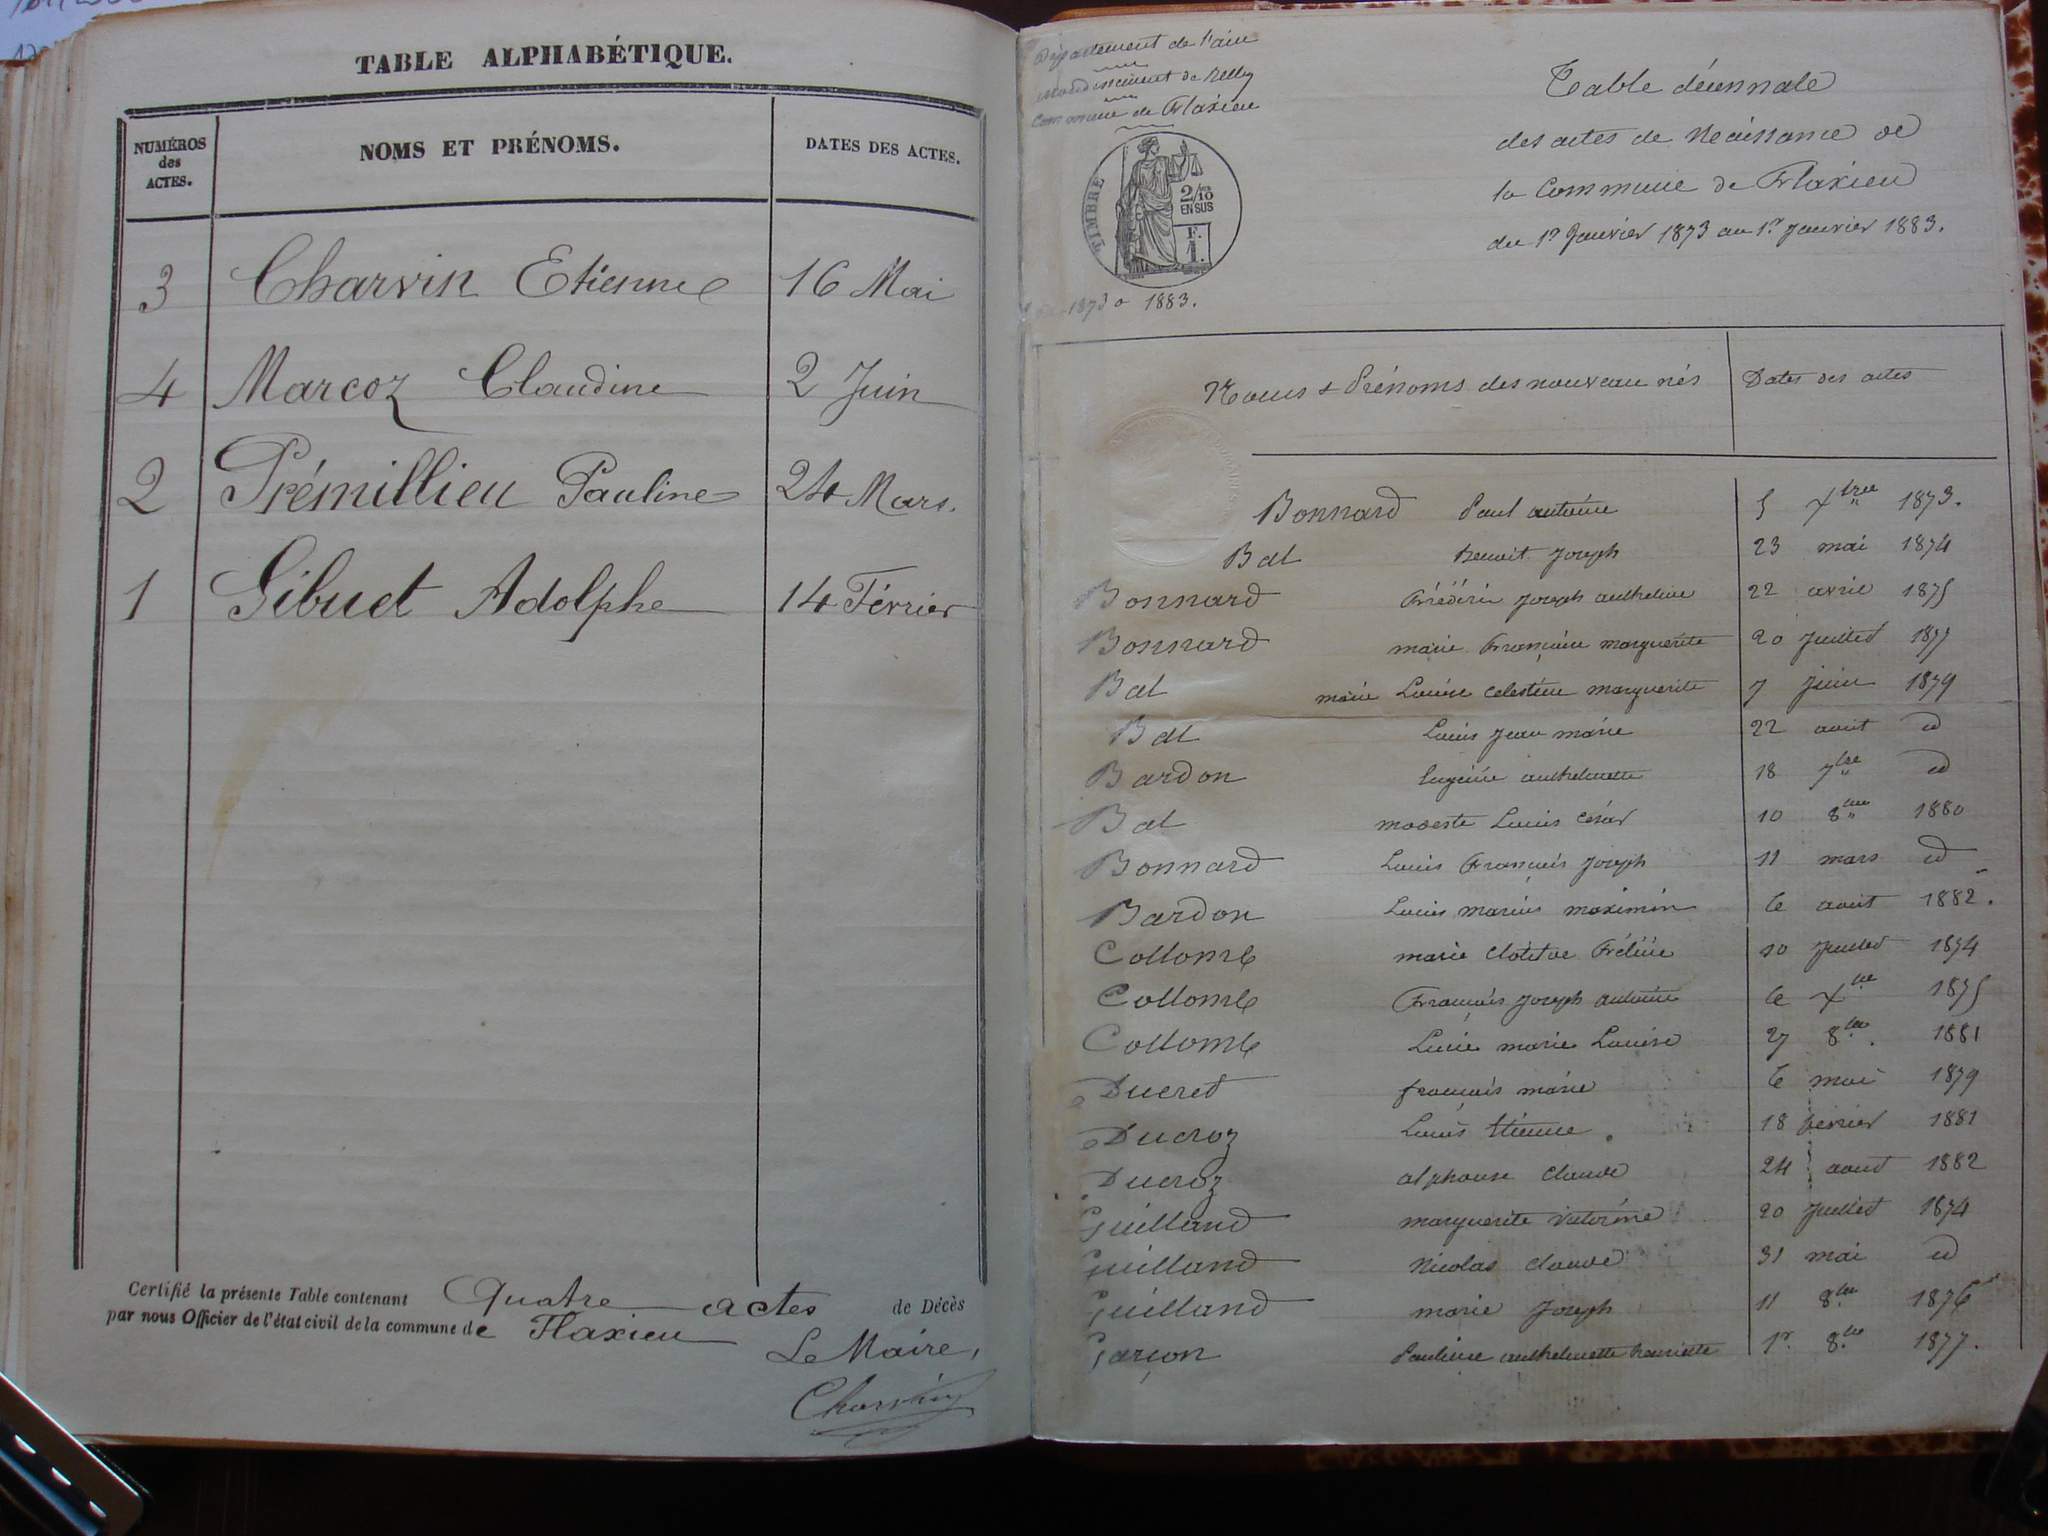 TABLE ALPHABÉTIQUE.
NUMÉROS des ACTES. NOMS ET PRÉNOMS. DATES DES ACTES.
3 Charvin Etienne 16 Mai
4 Marcoz Claudine 2 Juin
2 Prémillieu Pauline 24 Mars.
1 Gibuet Adolphe 14 Février
Certifié la présente Table contenant Quatre actes de Décès
par nous Officier de l'état civil de la commune de Flaxieu
Le Maire,
Charvin
Département de l'ain
arrondissement de Belley
Commune de Flaxieu
TIMBRE
2/10
EN SUS
F.
1.
1873 a 1883.
Table décennale
des actes de Naissance de
la Commune de Flaxieu
du 1er Janvier 1873 au 1er Janvier 1883.
Noms & Prénoms des nouveau nés Dates des actes
Bonnard Paul antoine 5 Xbre 1873.
Bal Benoit Joseph 23 mai 1874
Bonnard Frédéric Joseph anthelme 22 avril 1875
Bonnard marie Françoise marguerite 20 Juillet 1877
Bal marie Louise celestine marguerite 7 Juin 1879
Bal Louis Jean marie 22 aout id
Bardon Eugénie anthelmette 18 7bre id
Bal modeste Louis César 10 8bre 1880
Bonnard Louis François Joseph 11 mars id
Bardon Louis marius maximin 6 aout 1882.
Collomb marie Clotilde 10 Juillet 1874
Collomb François Joseph antoine 6 Xbre 1875
Collomb Lucie marie Louise 27 8bre. 1881
Ducret françois marie 6 mai 1879
Ducroz Louis Etienne. 18 février 1881
Ducroz alphonse claude 24 aout 1882
Guilland marguerite victorine 20 Juillet 1874
Guilland Nicolas claude 31 mai id
Guilland marie Joseph 11 8bre 1876
Garçon Pauline anthelmette henriette 1er 8bre 1877.